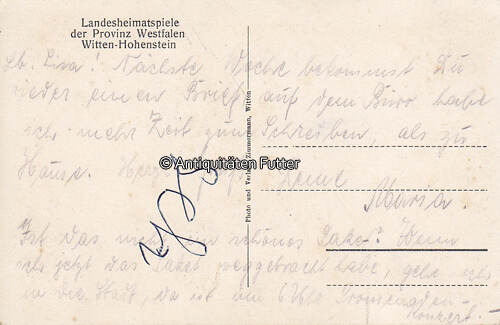 Landesheimatspiele
der Provinz Westfalen
Witten-Hohenstein
Lb. Lisa! Nächste Woche bekommst Du
wieder einen Brief auf dem Büro habe
ich mehr Zeit zum Schreiben, als zu
Hause. Herzl.
Deine
Maria.
©Antiquitäten Futter
Photo und Verlag Zimmermann, Witten
Ist das nicht ein schönes Wenn
ich jetzt das Paket weggebracht habe, gehe ich
in die Stadt, da ist um Promenaden-
Konzert.